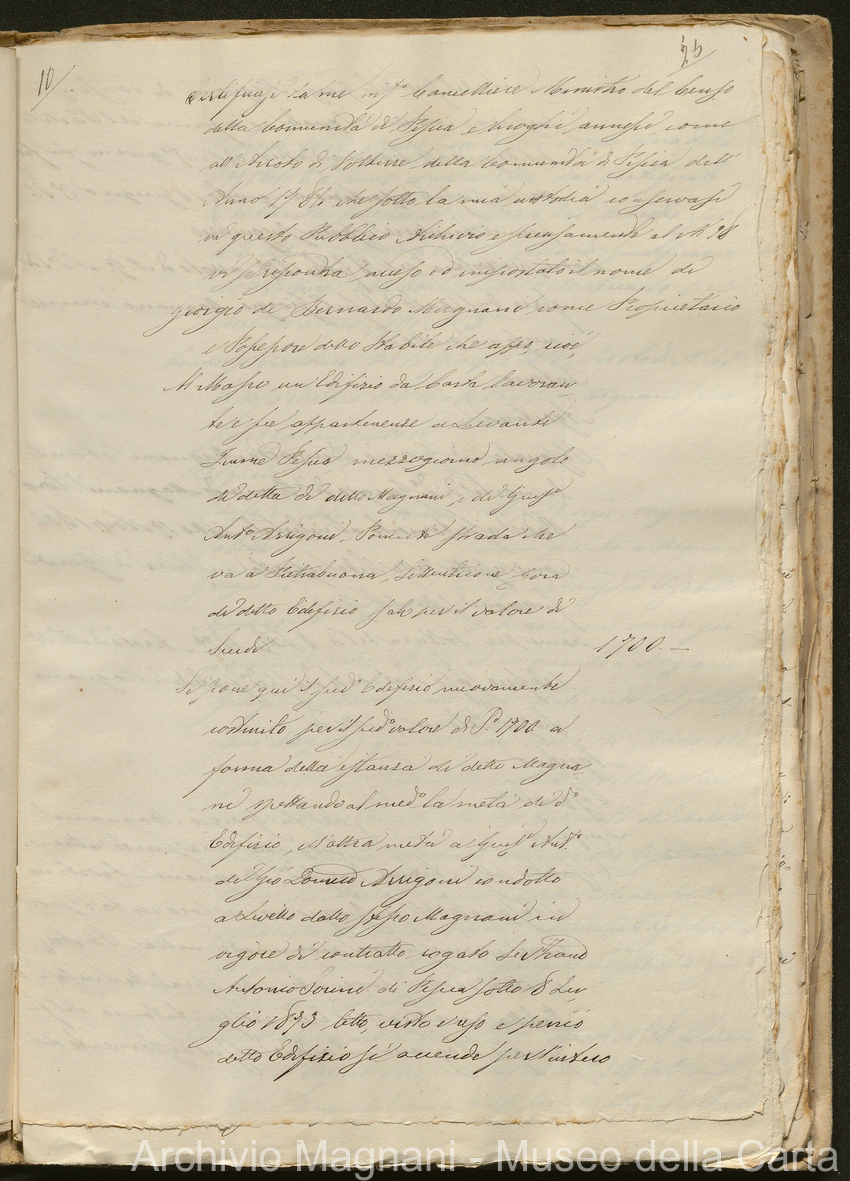 10/
25
Certificasi da me inf.o Cancelliere Ministro del Censo
della Comunità di Pescia e luoghi annessi come
all'Arroto di Volture della Comunità di Pescia dell'
Anno 1786 che sotto la mia custodia conservasi
in questo Pubblico Archivio e precisamente al N. 98
vi si riscontra acceso ed impostato il nome di
Giorgio di Bernardo Magnani come Proprietario
e Possessore dello Stabile che app.o, cioè,
Al Masso un Edifizio da Carta lavoran
te e sue appartenenze a Levante
Fiume Pescia mezzogiorno angolo
di detta di detto Magnani, e di Gius.e
Ant.o Arrigoni, Ponente strada che
va a Pietrabuona, Settentrione Gora
di detto Edifizio per il valore di
Scudi 1700. —
Si pone qui il sud.o Edifizio nuovamente
costruito per il sud.o valore di S.di 1700. a
forma della istanza di detto Magna
ni spettando al med.o la metà di d.o
Edifizio, e l'altra metà a Gius.e Ant.o
del Gio Domen.o Arrigoni condotto
a Livello dallo stesso Magnani in
vigore di contratto rogato Ser
Antonio Sorini di Pescia sotto 8 Lu
glio letto, visto e perciò
detto Edifizio si accende per l'intero
Archivio Magnani - Museo della Carta